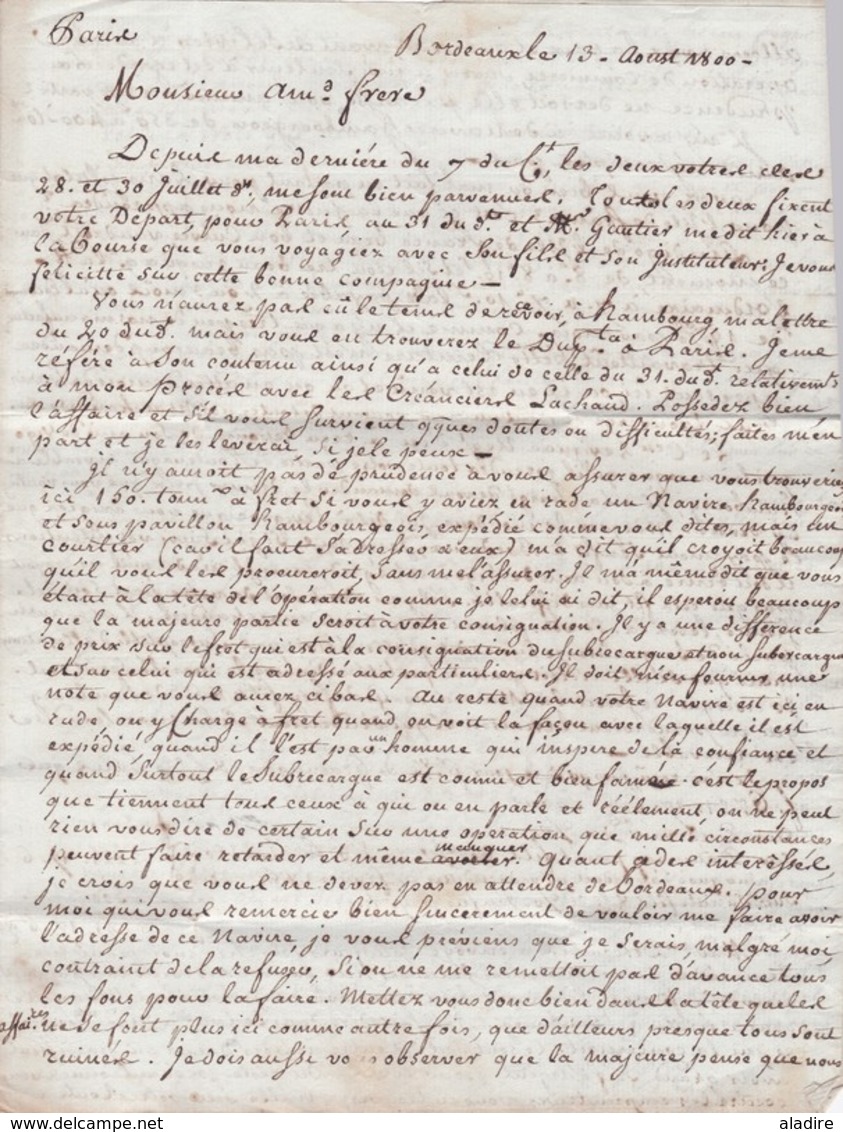 Paris
Bordeaux le 13 - Aoust 1800 -
Monsieur am.d frere
Depuis ma derniére du 7 du C.t, les deux votres des
28. et 30 Juillet d.r, me sont bien parvenues. Toutes les deux fixent
votre Départ, pour Paris, au 31 dud.t et M.r Gautier me dit hier à
la bourse que vous voyagiez avec son fils et son Instituteur. Je vous
felicitte sur cette bonne compagnie -
Vous n'aurez pas eû le tems de reçevoir, à hambourg, ma lettre
du 20 dud.t mais vous en trouverez le Dup.ta à Paris. Je me
référe à son contenu ainsi qu'a celui de celle du 31. dud.t relativem.t
à mon procés avec les Créanciers Lachaud. Possedez bien
l'affaire et s'il vous survient qques doutes ou difficultés; faites m'en
part et je les leverai, si je le peux -
Il n'y auroit pas de prudence à vous assurer que vous trouveriez
ici 150. tonn.x à fret si vous y aviez en rade un Navire hambourgeois
et sous pavillon hambourgeois, expédié comme vous dites, mais un
courtier (car il faut s'adresser à eux) m'a dit qu'il croyoit beaucoup
qu'il vous les procureroit, sans me l'assurer. Il m'a même dit que vous
étant à la tête de l'opération comme je le lui ai dit, il esperoit beaucoup
que la majeure partie seroit à votre consignation. Il y a une différence
de prix sur le fret qui est à la consignation du subrecargue et non subercargue
et sur celui qui est adressé aux particuliers. Il doit m'en fournir une
note que vous aurez ci bas. Au reste quand votre Navire est ici en
rade, on y charge à fret quand on voit la façon avec laquelle il est
expédié, quand il l'est par un homme qui inspire de la confiance et
quand surtout le Subrecargue est connu et bien famé. c'est le propos
que tiennent tous ceux à qui on en parle et réelement, on ne peut
rien vous dire de certain sur une operation que mille circonstances
peuvent faire retarder et même avorter manquer. Quant a des interéssés,
je crois que vous ne devez pas en attendre de Bordeaux. pour
moi qui vous remercie bien sincerement de vouloir me faire avoir
l'adresse de ce Navire, je vous préviens que je serais, malgré moi
contraint de la refuser, si on ne me remettoit pas d'avance tous
les fons pour la faire. Mettez vous donc bien dans la tête que les
affaires ne se font plus ici comme autre fois, que d'ailleurs presque tous sont
ruinés. Je dois aussi vous observer que la majeure pense que nous
aladire